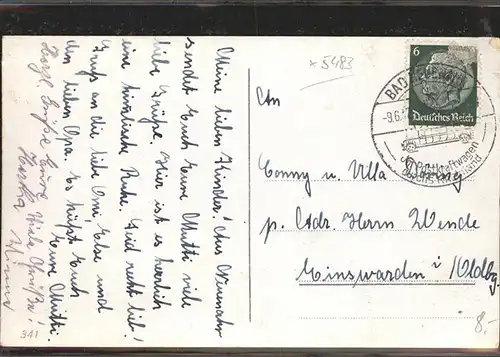 Meine lieben Kinder! Aus Neuenahr
sendet Euch Eure Mutti viel
liebe Grüße. Hier ist es herrlich
eine himmlische Ruhe. Seid recht lieb!
Gruß an die liebe Omi Else und
den lieben Opa. Es küßt Euch
Eure Mutti.
Herzl. Grüße Eure
Viele Grüße!
341
× 5483
6
Deutsches Reich
BAD NEUENAHR
-9.6.
Kraftwagen
An
Conny u. Ulla
p. Adr. Herrn Wende
Einswarden i/Oldbg.
8.-